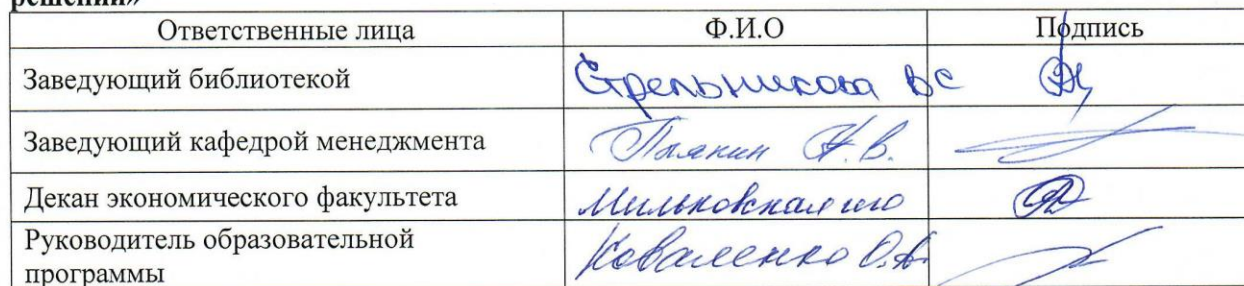 решений»
Ответственные лица Ф.И.О Подпись
Заведующий библиотекой Стрельникова ВС
Заведующий кафедрой менеджмента Н.В.
Декан экономического факультета Мильковская
Руководитель образовательной
программы Коваленко О.А.